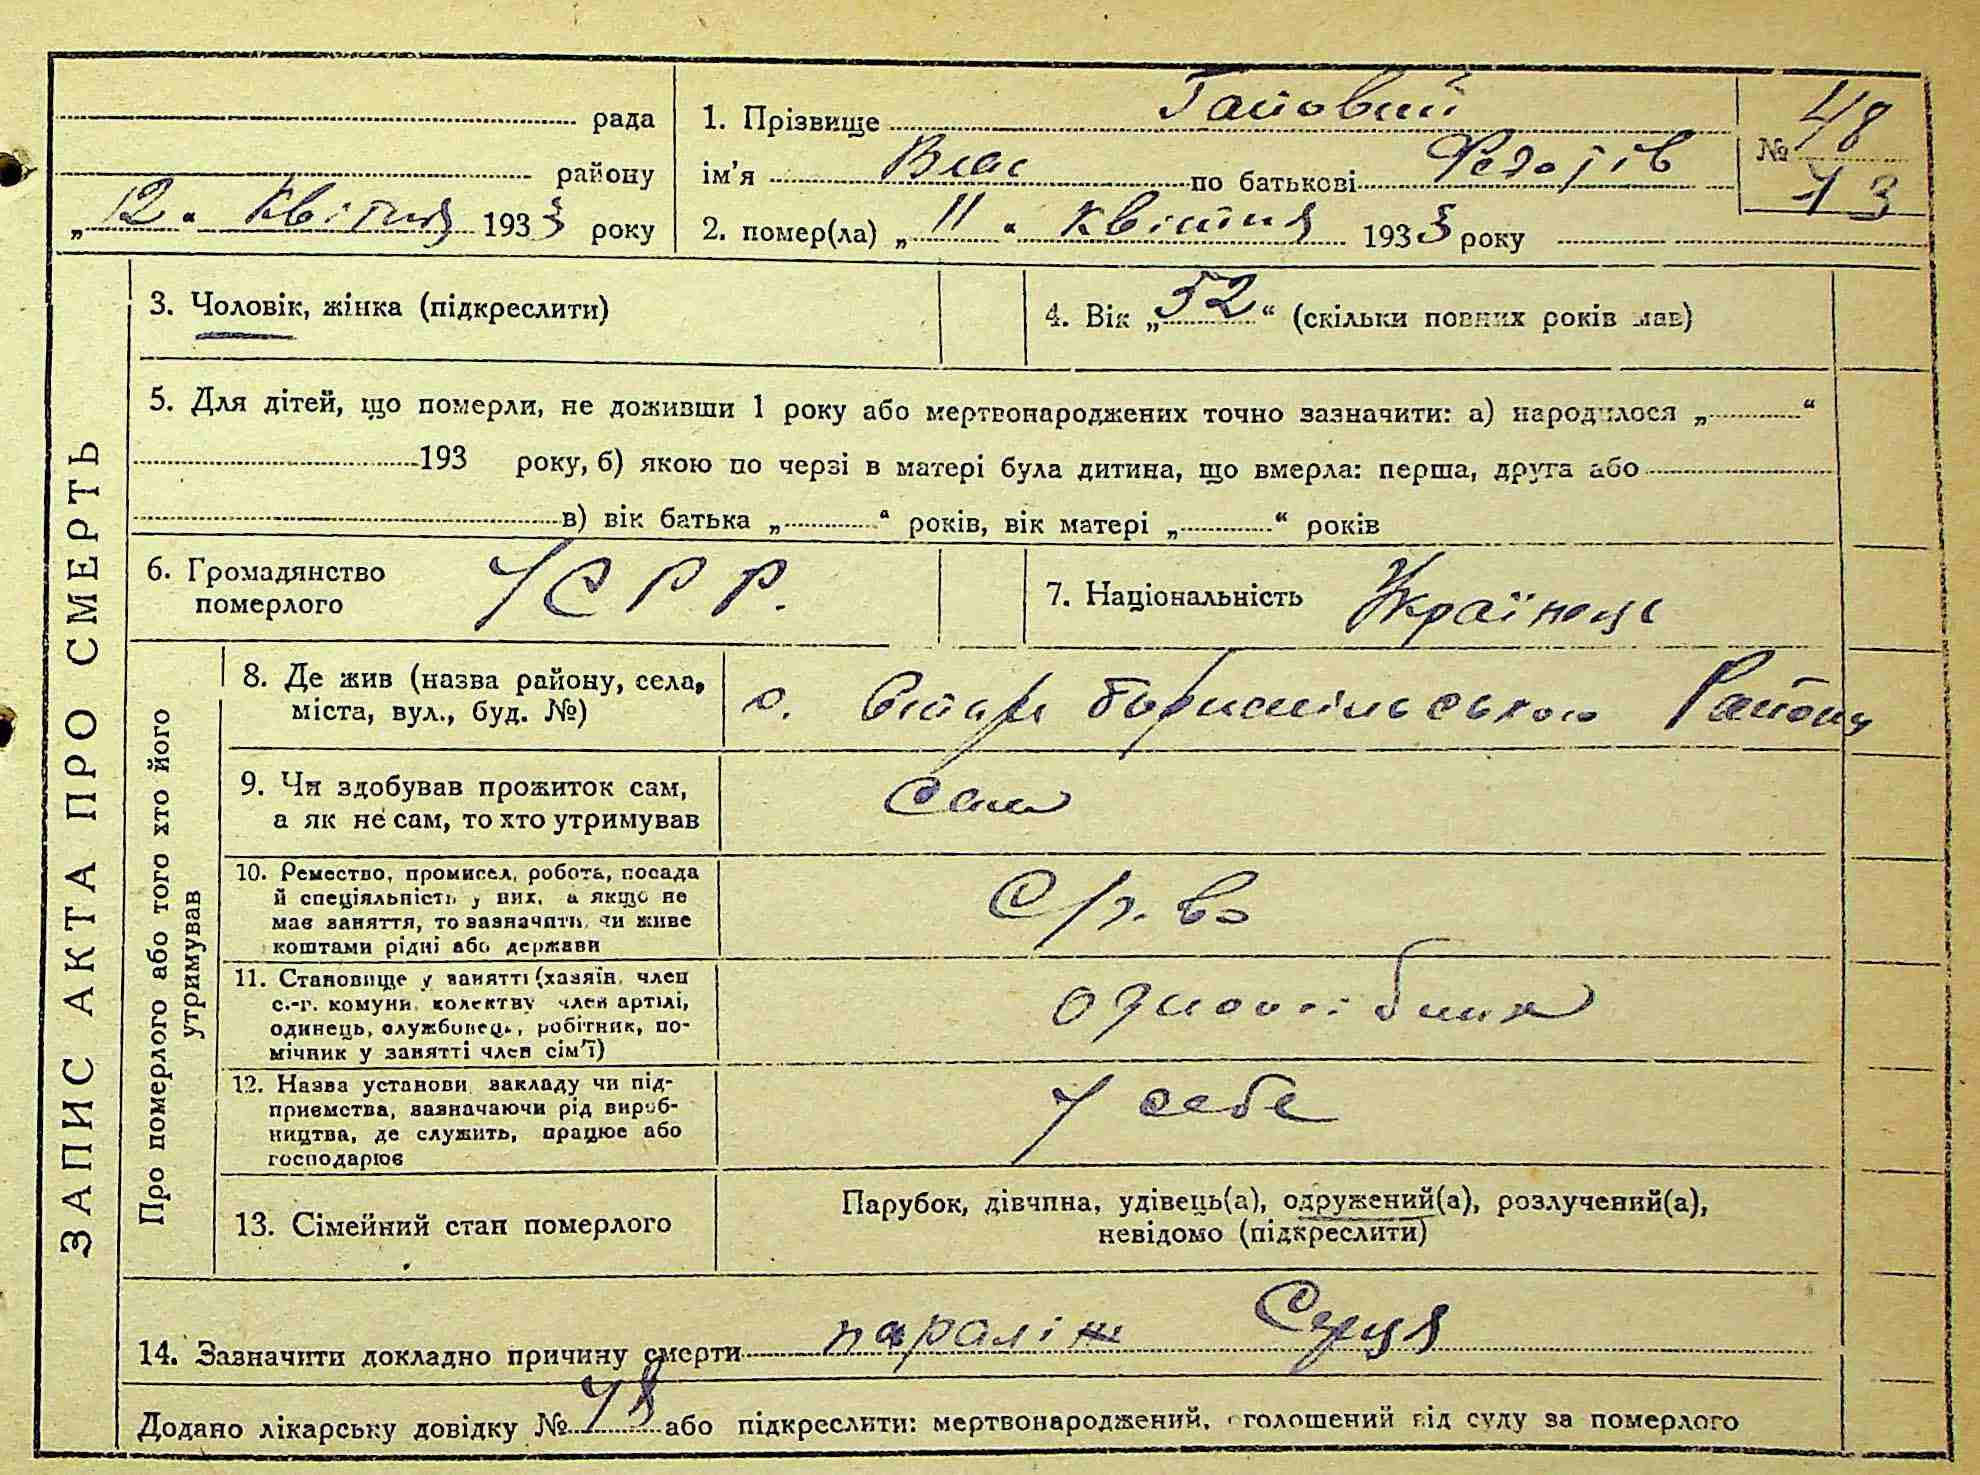 рада
району
„12“ Квітня 1933 року
1. Прізвище Гайовий
ім'я Влас по батькові Федотів
2. помер(ла) „11“ квітня 1933 року
№ 48
73
ЗАПИС АКТА ПРО СМЕРТЬ
3. Чоловік, жінка (підкреслити)
4. Вік „52“ (скільки повних років мав)
5. Для дітей, що померли, не доживши 1 року або мертвонароджених точно зазначити: а) народилося „ “
193 року, б) якою по черзі в матері була дитина, що вмерла: перша, друга або
в) вік батька „ “ років, вік матері „ “ років
6. Громадянство
померлого
УСРР.
7. Національність Українець
Про померлого або того хто його
утримував
8. Де жив (назва району, села,
міста, вул., буд. №)
с. Бориспільського Району
9. Чи здобував прожиток сам,
а як не сам, то хто утримував
сам
10. Ремество, промисел, робота, посада
й спеціяльність у них, а якщо не
має заняття, то зазначити, чи живе
коштами рідні або держави
С/г-во
11. Становище у занятті (хазяїн, член
с.-г. комуни, колективу член артілі,
одинець, службовець, робітник, по-
мічник у занятті член сім'ї)
одноосібник
12. Назва установи, закладу чи під-
приємства, зазначаючи рід вироб-
ництва, де служить, працює або
господарює
у себе
13. Сімейний стан померлого
Парубок, дівчина, удівець(а), одружений(а), розлучений(а),
невідомо (підкреслити)
14. Зазначити докладно причину смерти параліж Серця
Додано лікарську довідку № 48 або підкреслити: мертвонароджений, оголошений від суду за померлого